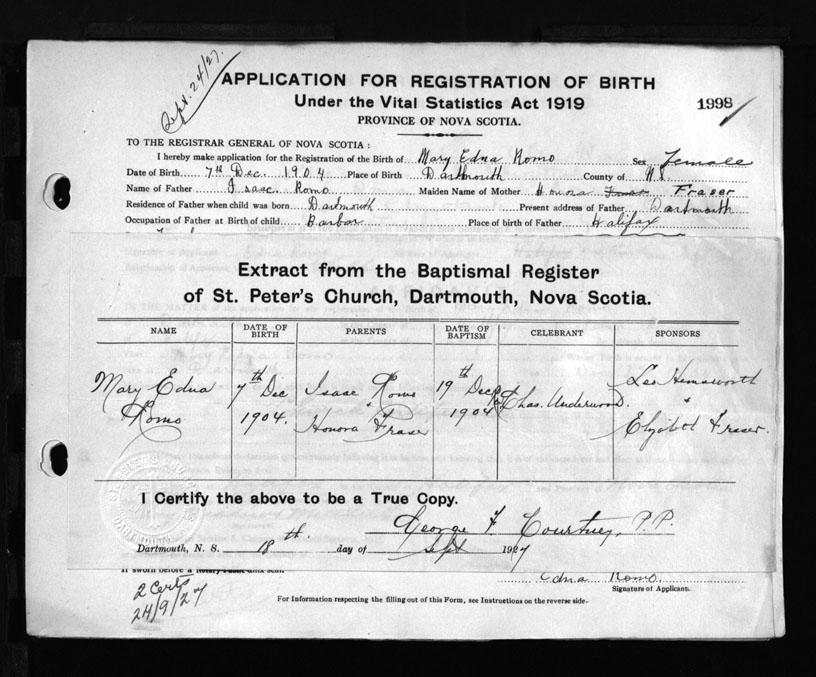 Sept. 24/27.
APPLICATION FOR REGISTRATION OF BIRTH
Under the Vital Statistics Act 1919
1998
PROVINCE OF NOVA SCOTIA.
TO THE REGISTRAR GENERAL OF NOVA SCOTIA :
I hereby make application for the Registration of the Birth of Mary Edna Romo Sex Female
Date of Birth 7th Dec. 1904 Place of Birth Dartmouth County of N.S.
Name of Father Isaac Romo Maiden Name of Mother Honora Fraser
Residence of Father when child was born Dartmouth Present address of Father Dartmouth
Occupation of Father at Birth of child Barbar Place of birth of Father Halifax
Extract from the Baptismal Register
of St. Peter's Church, Dartmouth, Nova Scotia.
NAME DATE OF BIRTH PARENTS DATE OF BAPTISM CELEBRANT SPONSORS
Mary Edna 7th Dec Isaac Romo 19th Dec Chas. Underwood. Leo Hemsworth
Romo 1904. Honora Fraser 1904 " Elizabeth Fraser.
I Certify the above to be a True Copy.
George F Courtney, P.P.
Dartmouth, N. S. 18th day of Sept 1927
If sworn before a Notary
Edna Romo.
Signature of Applicant.
2 Certs
24/9/27
For Information respecting the filling out of this Form, see Instructions on the reverse side.